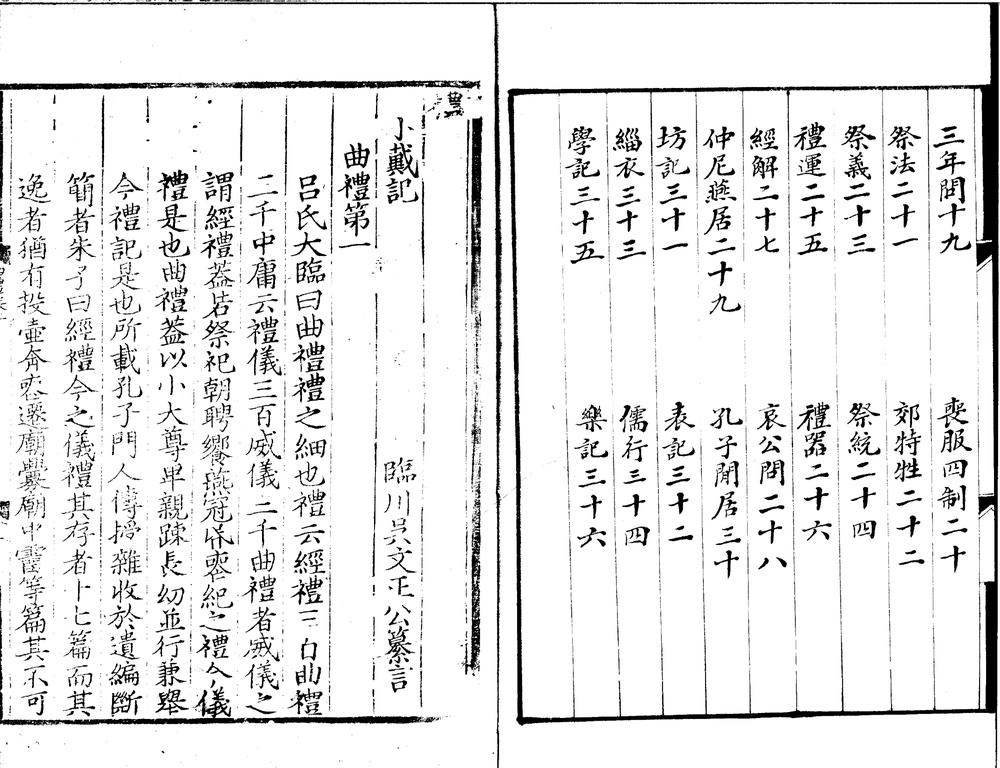 三年問十九　喪服四制二十
祭法二十一　郊特牲二十二
祭義二十三　祭統二十四
禮運二十五　禮器二十六
經解二十七　哀公問二十八
仲尼燕居二十九　孔子閒居三十
坊記三十一　表記三十二
緇衣三十三　儒行三十四
學記三十五　樂記三十六
小戴記　臨川吳文正公纂言
曲禮第一
呂氏大臨曰曲禮禮之細也禮云經禮三百曲禮
三千中庸云禮儀三百威儀三千曲禮者威儀之
謂經禮葢若祭祀朝聘饗燕冠昏喪紀之禮今儀
禮是也曲禮葢以小大尊卑親踈長幼並行兼舉
今禮記是也所載孔子門人傳授雜收於遺編斷
簡者朱子曰經禮今之儀禮其存者十七篇而其
逸者猶有投壺奔喪遷廟釁廟中霤等篇其不可